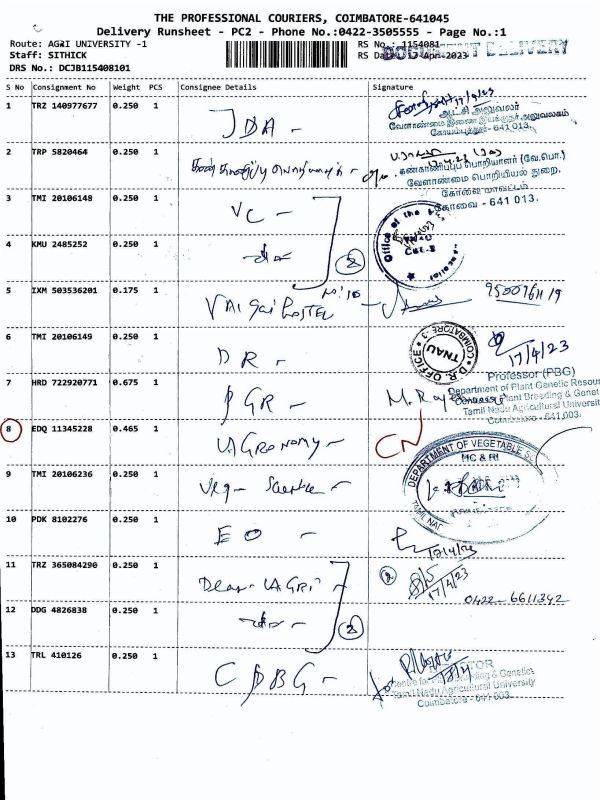 THE PROFESSIONAL COURIERS, COIMBATORE-641045
Delivery Runsheet - PC2 - Phone No.:0422-3505555 - Page No.:1
Route: AGRI UNIVERSITY -1
RS No.: 1154081
DOCUMENT DELIVERY
Staff: SITHICK
RS Date: 17-Apr-2023
DRS No.: DCJB115408101
S No Consignment No Weight PCS Consignee Details Signature
1 TRZ 140977677 0.250 1 JDA -
17/4/23
ஆட்சி அலுவலர்
வேளாண்மை இணை இயக்குநர் அலுவலகம்
கோயம்புத்தூர் - 641 013.
2 TRP 5820464 0.250 1
கண்காணிப்புப் பொறியாளர் (வே.பொ.)
வேளாண்மை பொறியியல் துறை,
கோவை மாவட்டம்
கோவை - 641 013.
3 TMI 20106148 0.250 1 VC -
Office of the
4 KMU 2485252 0.250 1
2
CBE-3
5 IXM 503536201 0.175 1 VAIGAI HOSTEL
6 TMI 20106149 0.250 1 DR -
D.R. OFFICE COIMBATORE-3
TNAU
17/4/23
Professor (PBG)
7 HRD 722920771 0.675 1 PGR -
Department of Plant Genetic Resour
Centre for Plant Breeding & Genet
Tamil Nadu Agricultural Universit
Coimbatore - 641 003.
8 EDQ 11345228 0.465 1 AGRONOMY -
CN
DEPARTMENT OF VEGETABLE
HC & RI
9 TMI 20106236 0.250 1 Veg - Science -
TAMIL NAD
10 PDK 8102276 0.250 1 EO -
17/4/23
11 TRZ 365084290 0.250 1 Dean - AGRI
2
17/4/23
0422-6611342
12 DDG 4826838 0.250 1
2
13 TRL 410126 0.250 1 CPBG -
DIRECTOR
Centre for Plant Breeding & Genetics
Tamil Nadu Agricultural University
Coimbatore - 641 003.